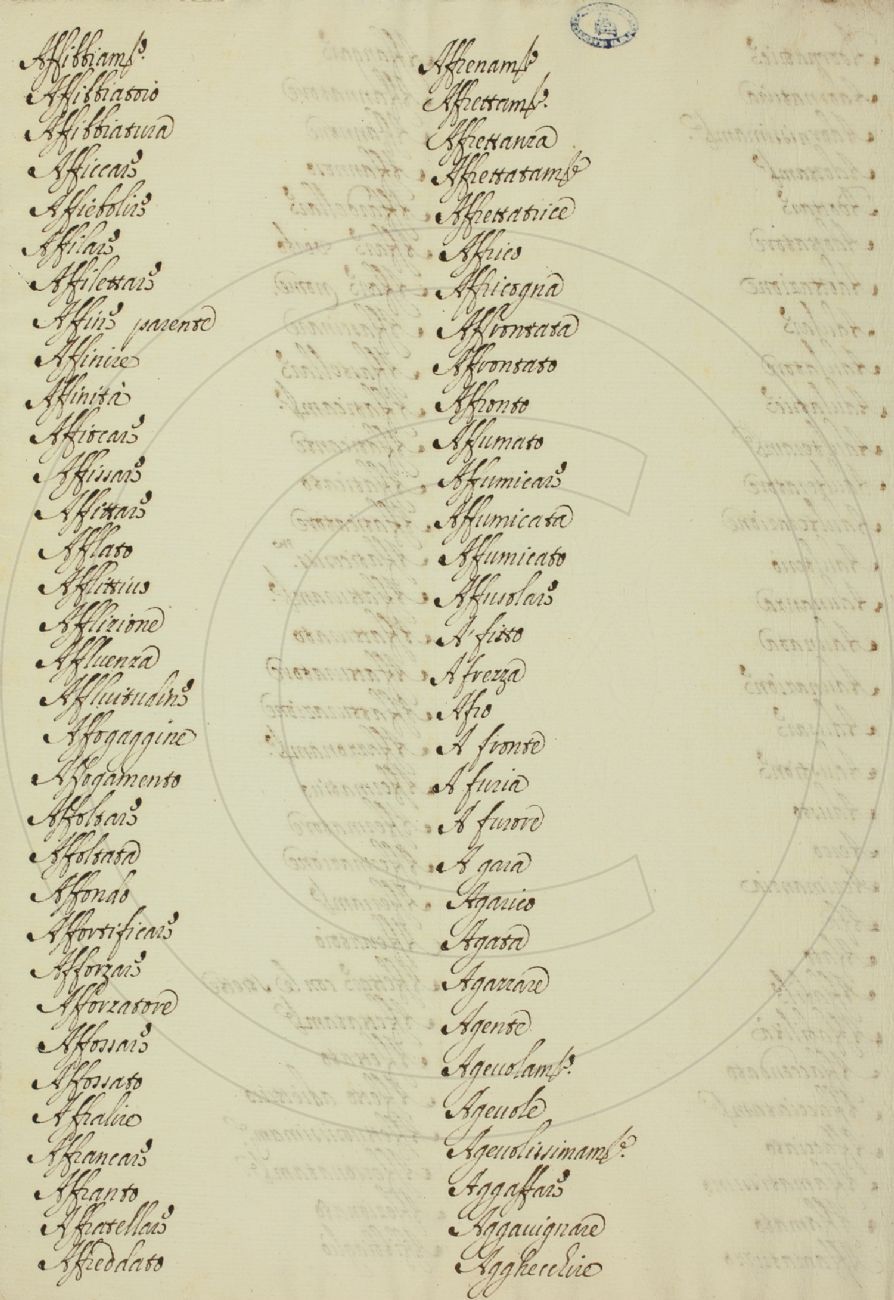 Affibbiam.to
Affibbiatoio
Affibbiatura
Afficcare
Affiebolire
Affilare
Affilettare
Affine parente
Affinire
Affinità
Affiocare
Affissare
Affittare
Afflato
Afflittivo
Afflizione
Affluenza
Affluitudine
Affogaggine
Affogamento
Affoltare
Affoltata
Affondo
Affortificare
Afforzare
Afforzatore
Affossare
Affossato
Affralire
Affrancare
Affranto
Affratellare
Affreddato
Affrenam.to
Affrettam.to
Affrettanza
Affrettatam.te
Affrettatrice
Affrico
Affricogna
Affrontata
Affrontato
Affronto
Affumato
Affumicare
Affumicata
Affumicato
Affusolare
A fitto
A frezza
Afro
A fronte
A furia
A furore
A gara
Agarico
Agata
Agazzare
Agente
Agevolam.to
Agevole
Agevolissimam.te
Aggaffare
Aggavignare
Agghecchire